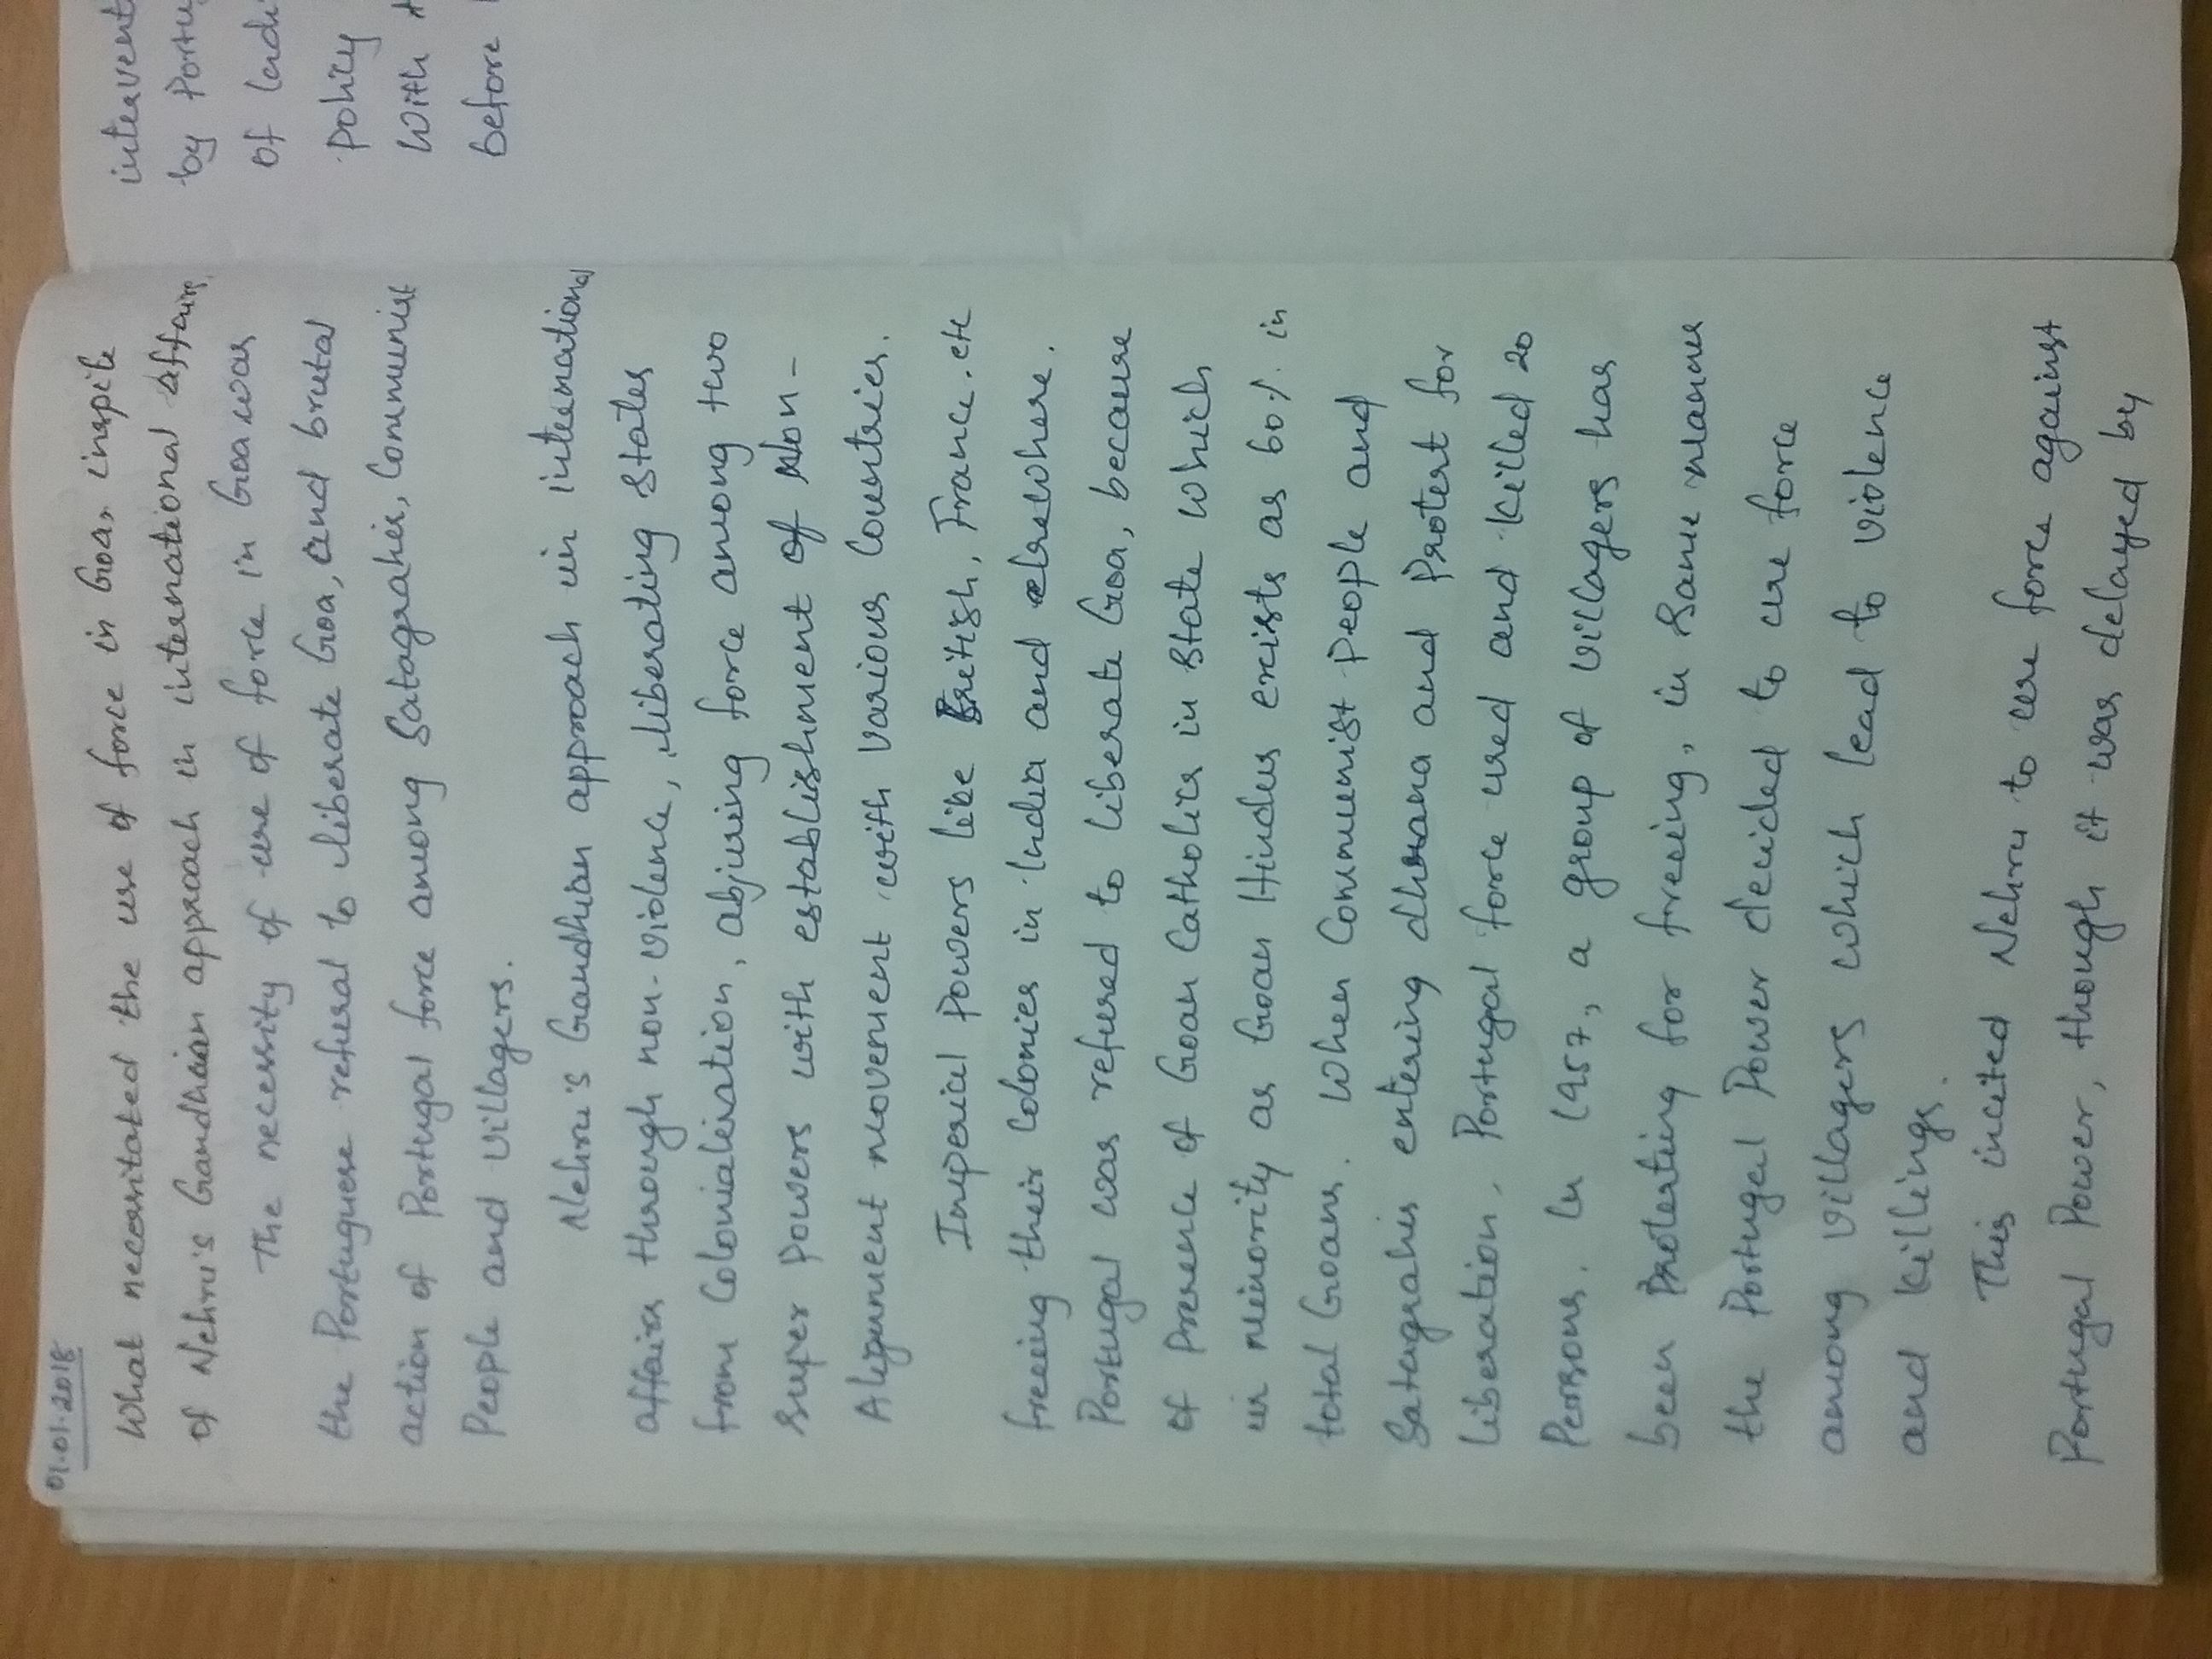 01.01.2018
What necessitated the use of force in Goa, inspite
of Nehru's Gandhian approach in international affairs,
The necessity of use of force in Goa was
the Portuguese refusal to liberate Goa, and brutal
action of Portugal force among Satagrahis, Communist
People and villagers.
Nehru's Gandhian approach in international
affairs through non-violence, liberating states
from Colonialisation, abjuring force among two
Super Powers with establishment of Non-
Alignment movement with various Countries.
Imperial Powers like British, France. etc
freeing their Colonies in India and elsewhere.
Portugal was refused to liberate Goa, because
of Presence of Goan Catholics in State which
is minority as Goan Hindus exists as 60% in
total Goans. When Communist People and
Satagrahis entering dharana and Protest for
liberation, Portugal force used and killed 20
Persons. In 1957, a group of villagers has
been Protesting for freeing, in Same manner
the Portugal Power decided to use force
among villagers which lead to violence
and killings.
This incited Nehru to use force against
Portugal Power, though it was delayed by
intervent
by Portu
of Indi
Policy
with
before